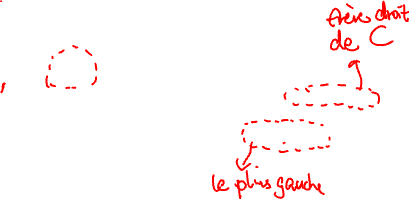 frère droit
de C
le plus gauche